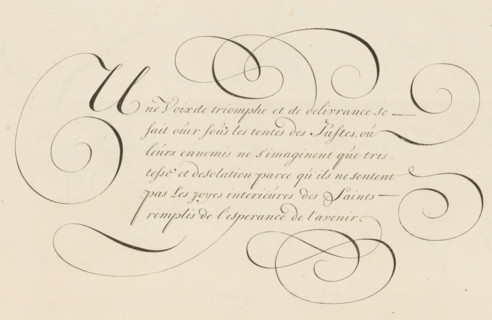 Une Voix de triomphe et de delivrance se
fait oüir sous les tentes des Justes, oú
leurs ennemis ne s'imaginent que tris-
tesse et desolation parce qu'ils ne sentent
pas Les joyes interieures des Saints
remplis de l'esperance de l'avenir.